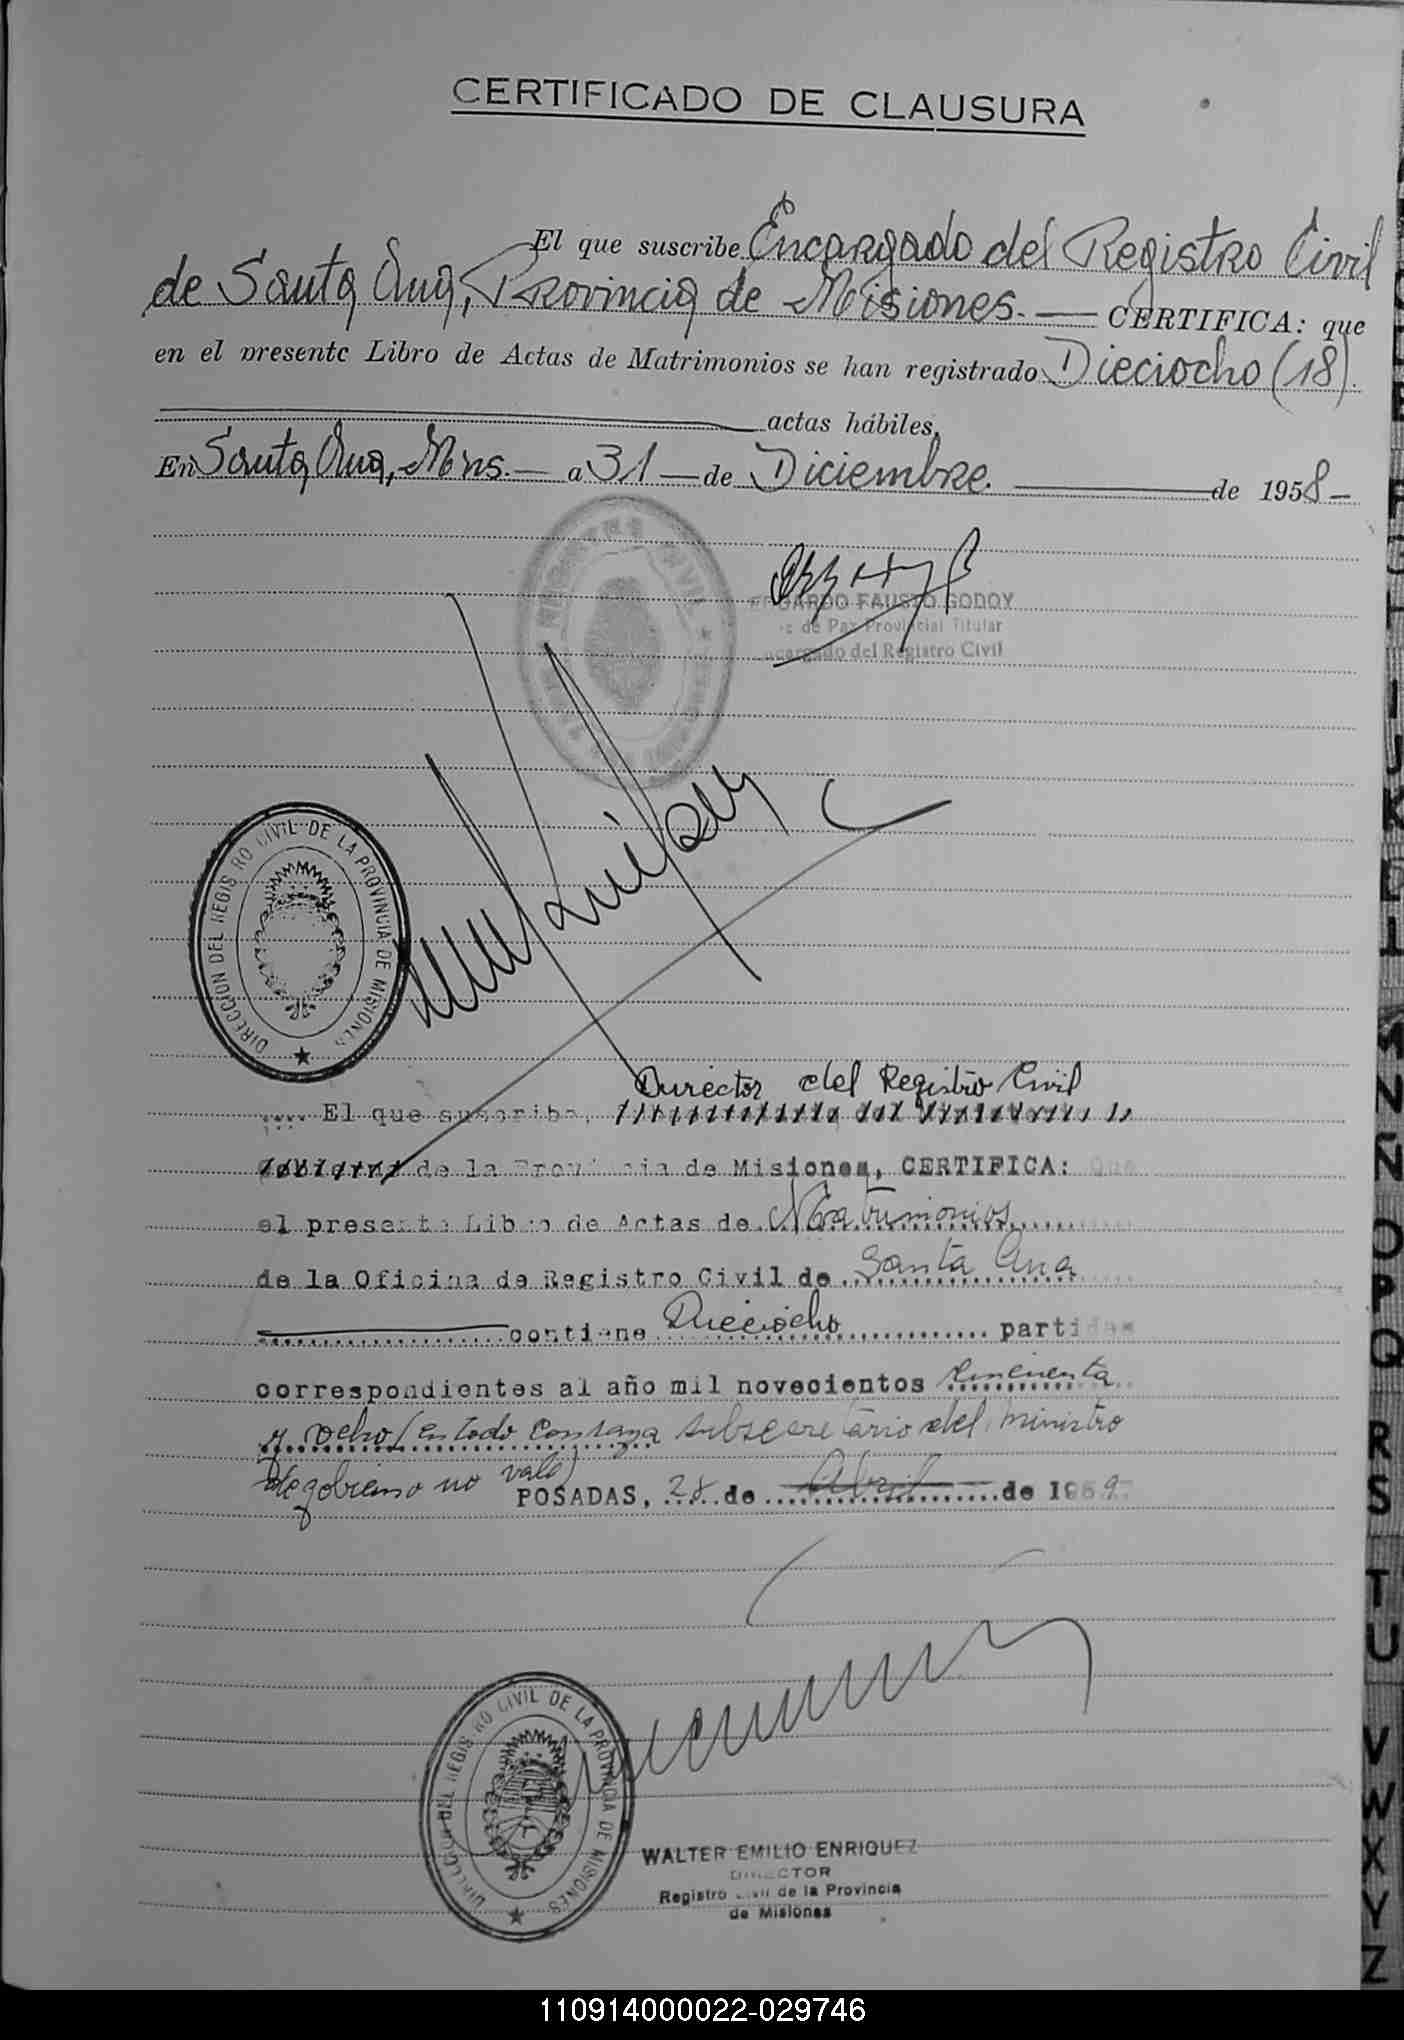 CERTIFICADO DE CLAUSURA
El que suscribe Encargado del Registro Civil
de Santa Ana, Provincia de Misiones. — CERTIFICA: que
en el presente Libro de Actas de Matrimonios se han registrado Dieciocho (18).
actas hábiles,
En Santa Ana, Mnes. — a 31 — de Diciembre. de 1958 —
EDGARDO FAUSTO GODOY
de Paz Provincial Titular
Encargado del Registro Civil
DIRECCION DEL REGISTRO CIVIL DE LA PROVINCIA DE MISIONES
Director del Registro Civil
.... El que suscribe,
de la Provincia de Misiones, CERTIFICA: Que
el presente Libro de Actas de Matrimonios
de la Oficina de Registro Civil de Santa Ana
contiene Dieciocho partidas
correspondientes al año mil novecientos cincuenta
y ocho (entado subsecretario del ministro
de gobierno no vale)
POSADAS, 28 de Abril de 1959
DIRECCION DEL REGISTRO CIVIL DE LA PROVINCIA DE MISIONES
WALTER EMILIO ENRIQUEZ
DIRECTOR
Registro Civil de la Provincia
de Misiones
J
K
M
N
Ñ
O
P
Q
R
S
T
U
V
W
X
Y
Z
110914000022-029746